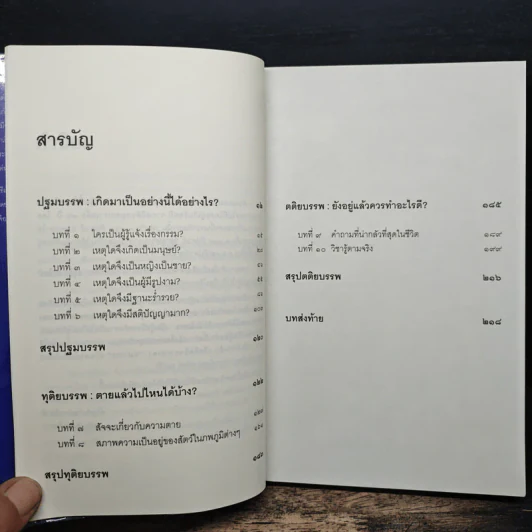 สารบัญ
ปฐมบรรพ : เกิดมาเป็นอย่างนี้ได้อย่างไร?
บทที่ ๑ ใครเป็นผู้รู้แจ้งเรื่องกรรม?
บทที่ ๒ เหตุใดจึงเกิดเป็นมนุษย์?
บทที่ ๓ เหตุใดจึงเป็นหญิงเป็นชาย?
บทที่ ๔ เหตุใดจึงเป็นผู้มีรูปงาม?
บทที่ ๕ เหตุใดจึงมีฐานะร่ำรวย?
บทที่ ๖ เหตุใดจึงมีสติปัญญามาก?
สรุปปฐมบรรพ ๑๒๐
ทุติยบรรพ : ตายแล้วไปไหนได้บ้าง? ๑๒๒
บทที่ ๗ สัจจะเกี่ยวกับความตาย
บทที่ ๘ สภาพความเป็นอยู่ของสัตว์ในภพภูมิต่างๆ
สรุปทุติยบรรพ
ตติยบรรพ : ยังอยู่แล้วควรทำอะไรดี? ๑๘๕
บทที่ ๙ คำถามที่น่ากลัวที่สุดในชีวิต ๑๘๙
บทที่ ๑๐ วิชารู้ตามจริง ๑๙๙
สรุปตติยบรรพ ๒๑๖
บทส่งท้าย ๒๑๘